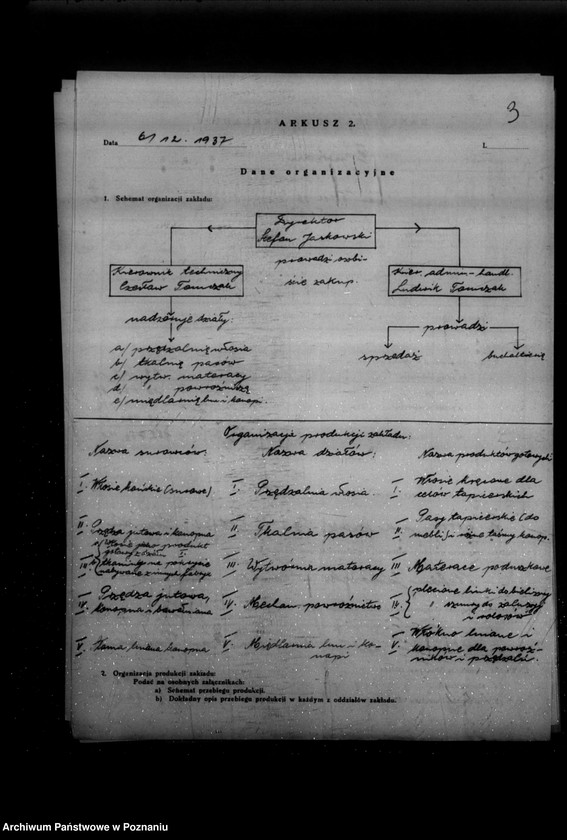 3
ARKUSZ 2.
Data 6/12. 1937 I.
Dane organizacyjne
1. Schemat organizacji zakładu:
Dyrektor
Stefan Jankowski
prowadzi osobi-
ście zakup.
Kierownik techniczny
Czesław Tomczak
Kier. admin-handl.
Ludwik Tomczak
nadzoruje działy:
a/ przędzalnię włosia
b/ tkalnię pasów
c/ wytw. materacy
d/ " powroźniczą
e/ międlarnię lnu i konopi.
prowadzi
sprzedaż
buchalterię
Organizacja produkcji zakładu:
Nazwa surowców: Nazwa działów: Nazwa produktów gotowych
I. Włosie końskie (surowe) I. Przędzalnia włosia. I. Włosie kręcone dla celów tapicerskich
II. Przędza jutowa i konopna II. Tkalnia pasów II. Pasy tapicerskie (do mebli) i różne taśmy konop.
III. a) Włosie jako produkt gotowy z działu I.
b) tkaniny na pokrycie nabywane z innych fabryk
III. Wytwórnia materacy III. Materace poduszkowe
IV. Przędza jutowa, konopna i bawełniana IV. Mechan. powroźnictwo IV. plecione linki do bielizny
" sznury do żaluzji i rolet
V. Słoma lniana konopna V. Międlarnia lnu i ko-
nopi V. Włókno lniane i
konopne dla powroź-
ników i przędzalni.
2. Organizacja produkcji zakładu:
Podać na osobnych załącznikach:
a) Schemat przebiegu produkcji.
b) Dokładny opis przebiegu produkcji w każdym z oddziałów zakładu.
Archiwum Państwowe w Poznaniu